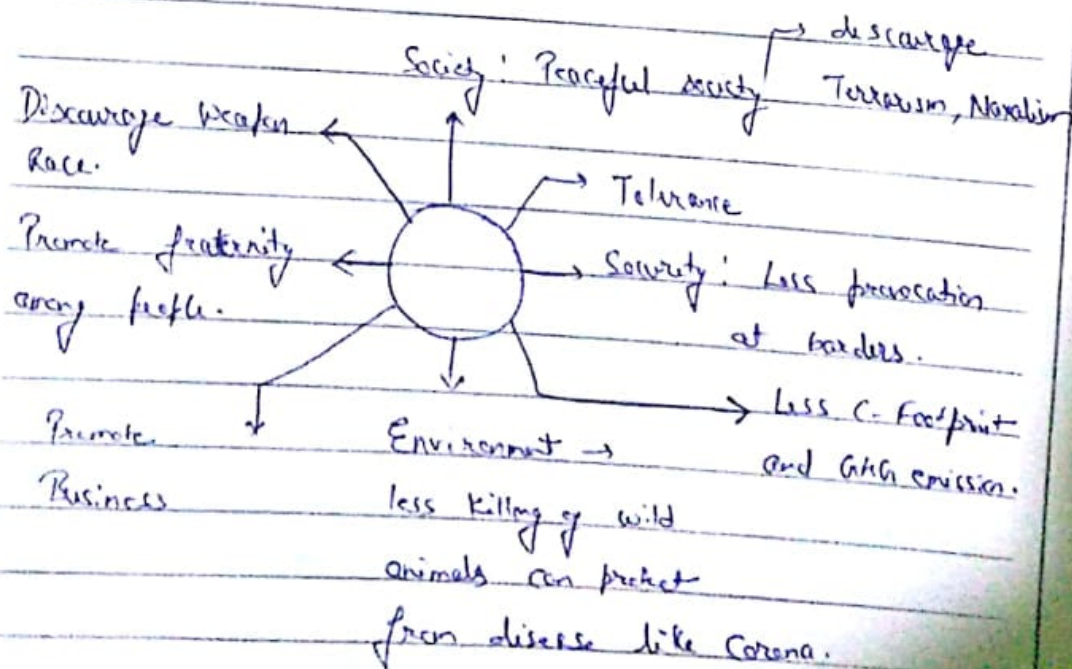 discourage
Society : Peaceful society
Terrorism, Naxalism
Discourage Weapon
Race.
Tolerance
Promote fraternity
among people.
Security : Less provocation
at borders.
Less C-Footprint
and GHG emission.
Promote
Business
Environment →
less killing of wild
animals can protect
from disease like Corona.